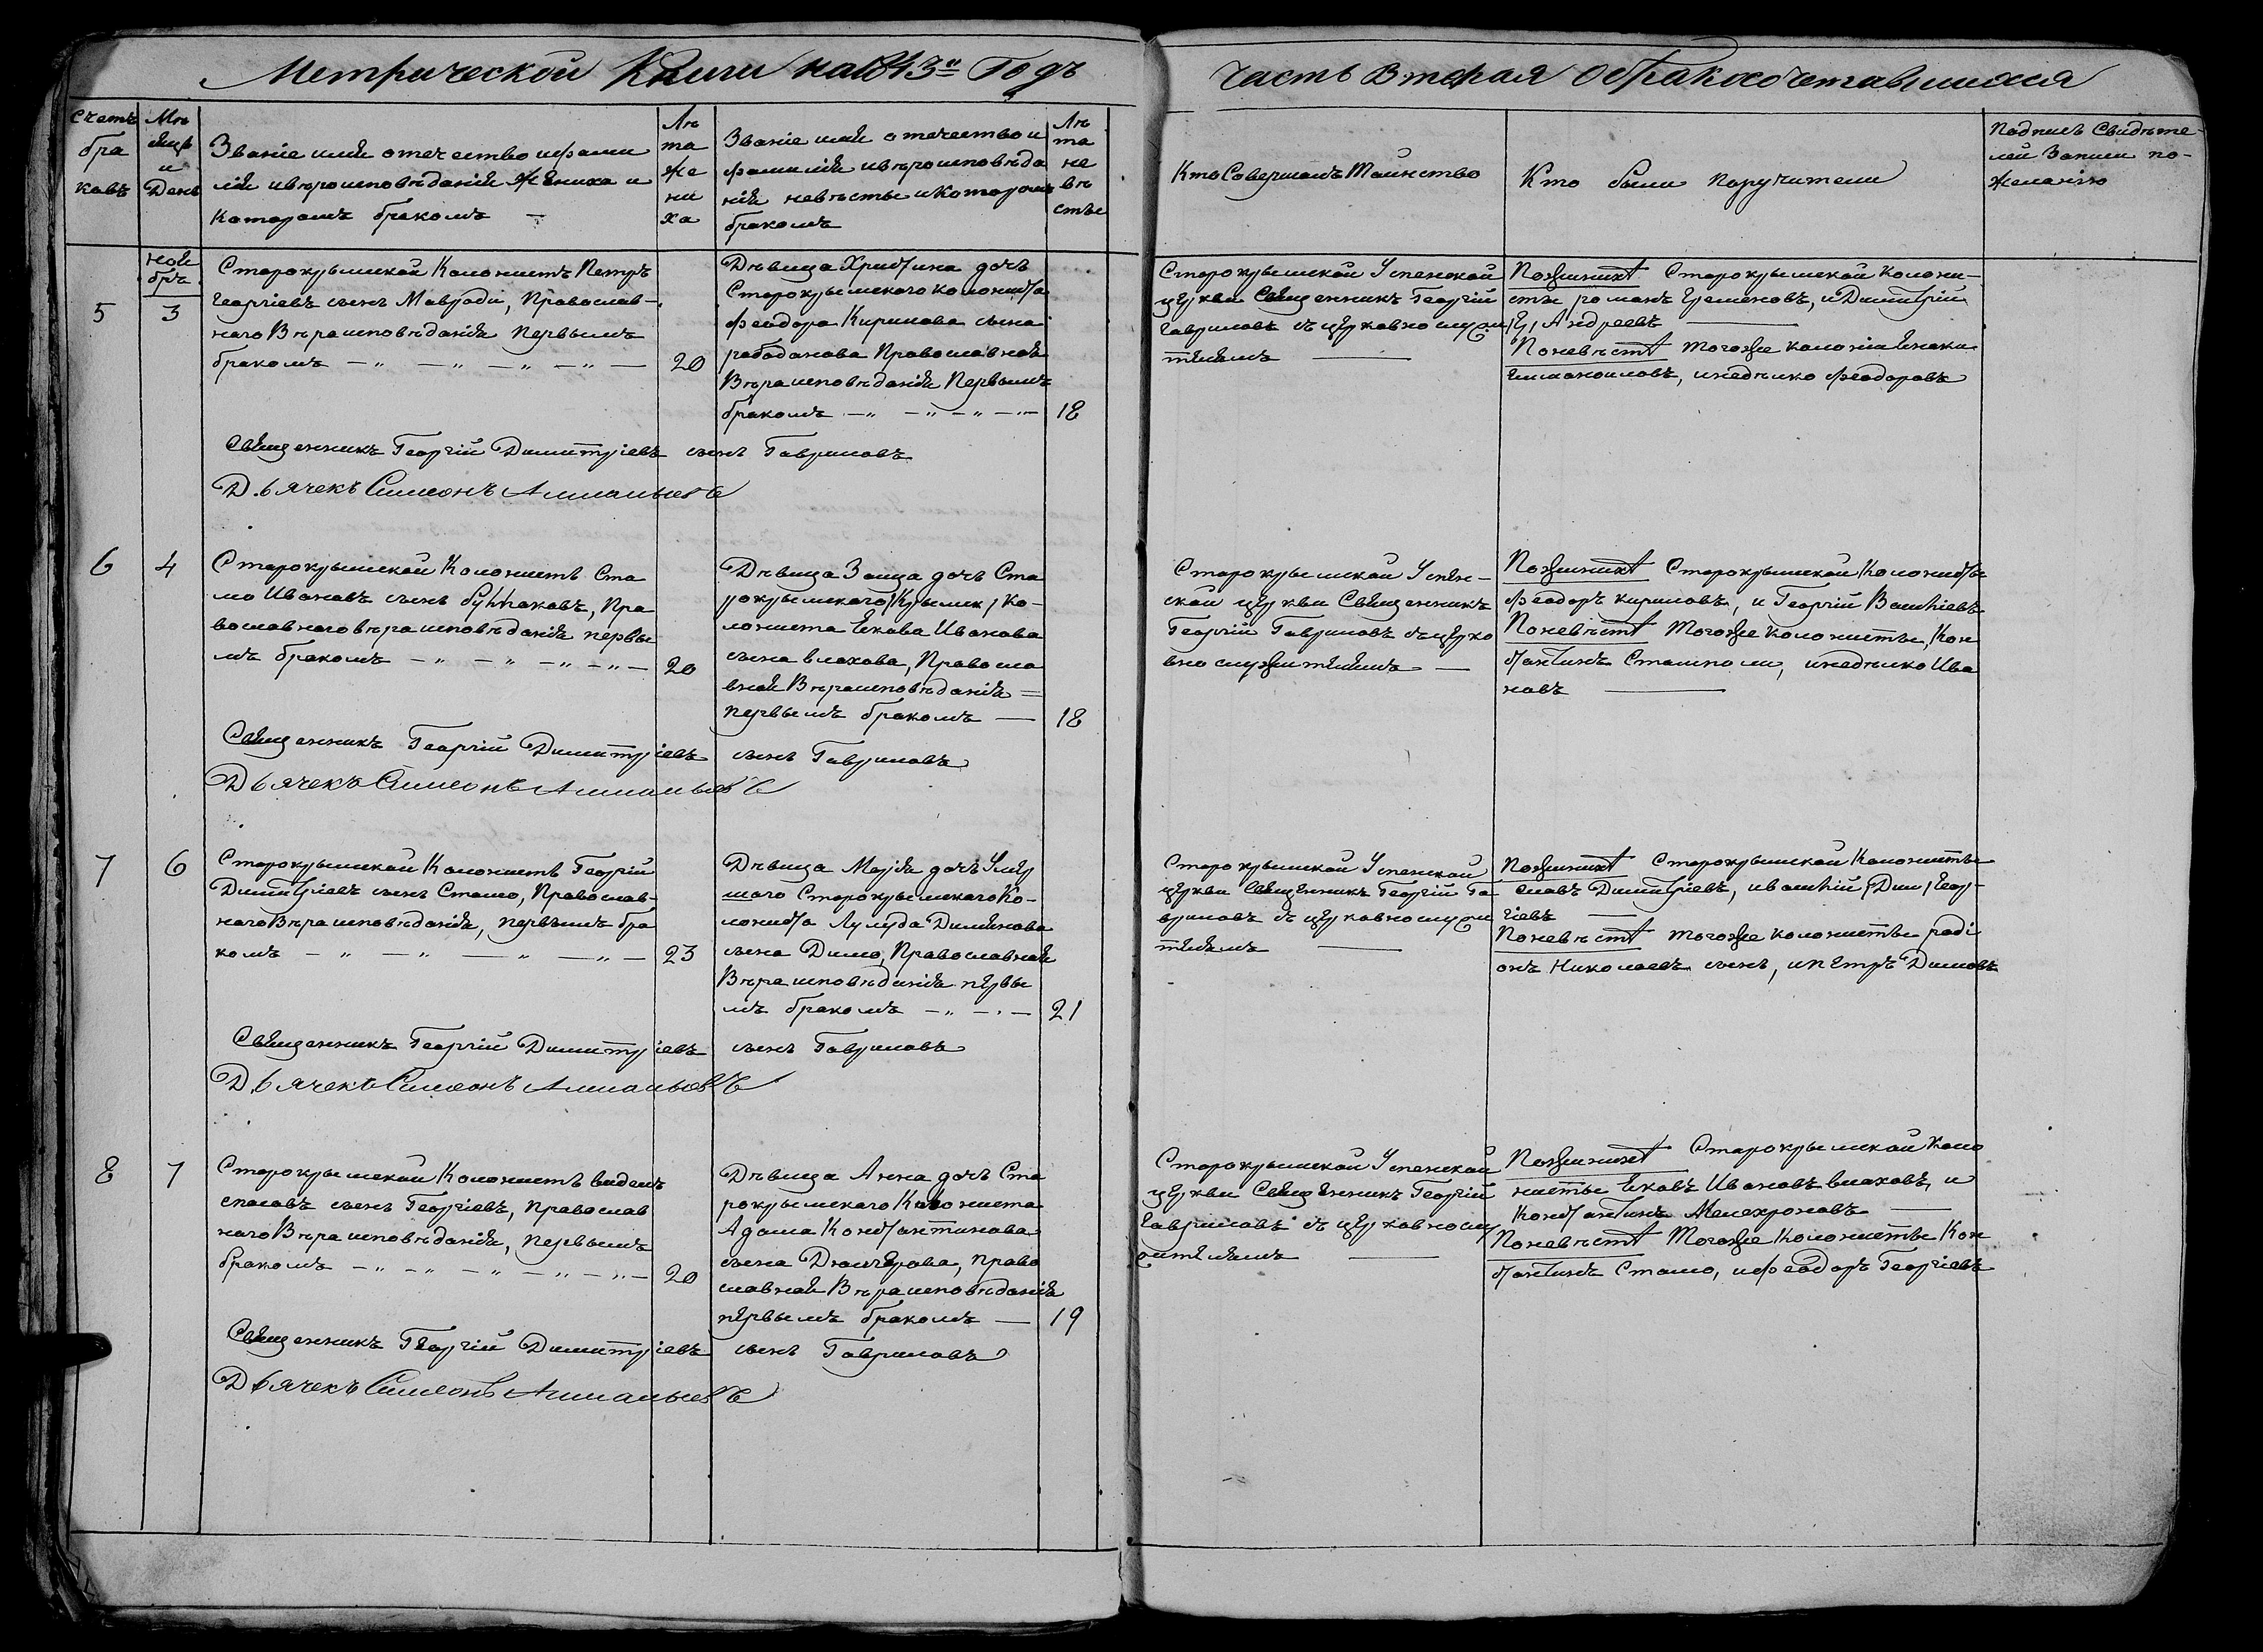 Метрической Книги на 1843й Годъ
Часть Вторая О бракосочетавшихся
Счетъ браковъ
Мѣсяцъ и День
Званіе имя отечество и фами
лія и вѣроисповѣданія Жениха и
Которымъ бракомъ —
Лѣта жениха
Званіе имя отечество и
фамилія и вѣроисповѣда
нія невѣсты и Которымъ
бракомъ
Лѣта невѣсты
Кто Совершалъ Таинство
Кто были Поручители
Подпись Свидѣте-
лей Записи по-
Желанію
5
ноя
бръ
3
Старокрымской Колонистъ Петръ
Георгіевъ сынъ Мавроди, Православ-
наго Вѣраисповѣданія Первымъ
бракомъ — „ — „ — „ — „ — 20
Дѣвица Христина дочь
Старокрымского колониста
Феодора Кирилова сына
Православная
Вѣраисповѣданія Первымъ
бракомъ — „ — „ — „ — 18
Старокрымской Успенской
церкви Священникъ Георгій
Гавриловъ съ церковнослужи
телями —
Поженихѣ Старокрымской колони-
сты романъ и Димитрій
Андреевъ —
Поневѣстѣ тогоже
и неделко Феодоровъ
Священникъ Георгій Димитріевъ сынъ Гавриловъ
Дьячекъ Симеонъ
6
4
Старокрымской Колонистъ Ста
мо Ивановъ сынъ Пра
вославнаго вѣраисповѣданія первы
мъ бракомъ — „ — „ — „ — „ — 20
Дѣвица Заица дочь Ста
рокрымского /Крымск/ Ко-
лониста Екова Иванова
сына влахова, Правосла
вная Вѣраисповѣданія =
первымъ бракомъ — 18
Старокрымской Успен-
ской церкви Священникъ
Георгій Гавриловъ съ церко
внослужителями —
Поженихѣ Старокрымской Колонисты
Феодоръ кириловъ, и Георгій
Поневѣстѣ тогоже колонисты, Кон
стантинъ и неделко Ива
новъ —
Священникъ Георгій Димитріевъ сынъ Гавриловъ
Дьячекъ Симеонъ
7
6
Старокрымской Колонистъ Георгій
Димитріевъ сынъ Стамо, Православ-
наго Вѣраисповѣданія, первымъ бра
комъ — „ — „ — „ — „ — 23
Дѣвица Марія дочь Умер
шаго Старокрымского Ко-
лониста
сына Димо, Православная
Вѣраисповѣданія первы
мъ бракомъ — „ — „ — 21
Старокрымской Успенской
церкви Священникъ Георгій Га
вриловъ съ церковнослужи
телями —
Поженихѣ Старокрымской Колонисты
славъ Димитріевъ, Геор-
гіевъ —
Поневѣстѣ тогоже колонисты раді
онъ Николаевъ сынъ, и Петръ Димовъ
Священникъ Георгій Димитріевъ сынъ Гавриловъ
Дьячекъ Симеонъ
8
7
Старокрымской Колонистъ
спасовъ сынъ Георгіевъ, Православ
наго Вѣраисповѣданія, Первымъ
бракомъ — „ — „ — „ — „ — „ — 20
Дѣвица Анна дочь Ста
рокрымского Колониста
Адама Константинова
сына Право
славная Вѣраисповѣданія
первымъ бракомъ — 19
Старокрымской Успенской
церкви Священникъ Георгій
Гавриловъ съ церковнослу
жителями —
Поженихѣ Старокрымской Коло
нисты Ековъ Ивановъ влаховъ, и
Константинъ —
Поневѣстѣ тогоже Колонисты Кон
стантинъ Стамо, и Феодоръ Георгіевъ
Священникъ Георгій Димитріевъ сынъ Гавриловъ
Дьячекъ Симеонъ